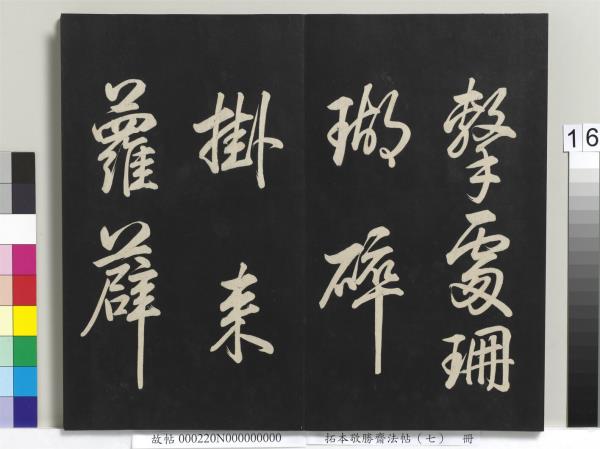 擊處珊
瑚碎
掛來
蘿薜
16
故帖 000220N000000000
拓本敬勝齋法帖(七) 冊